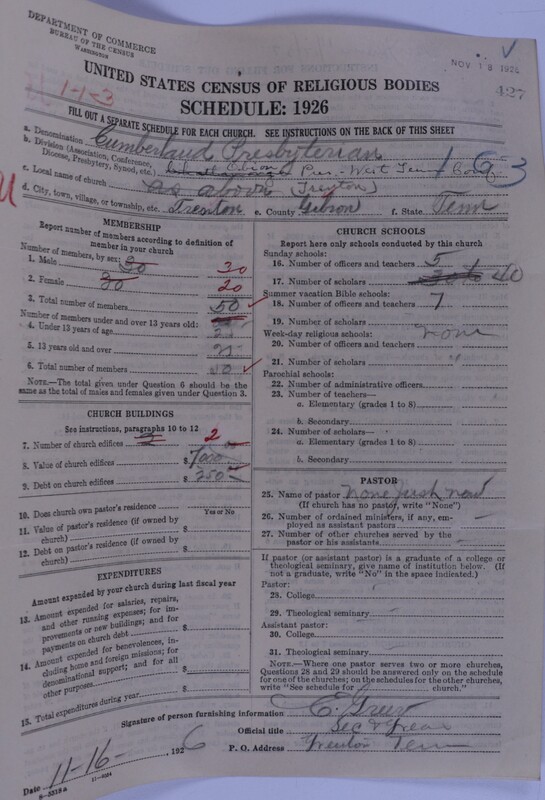 DEPARTMENT OF COMMERCE
BUREAU OF THE CENSUS
WASHINGTON
NOV 18 1926
427
UNITED STATES CENSUS OF RELIGIOUS BODIES
1-1-3
SCHEDULE: 1926
FILL OUT A SEPARATE SCHEDULE FOR EACH CHURCH. SEE INSTRUCTIONS ON THE BACK OF THIS SHEET
a. Denomination Cumberland Presbyterian
b. Division (Association, Conference, Diocese, Presbytery, Synod, etc.) Pres. West Tenn
c. Local name of church as above (Trenton)
d. City, town, village, or township, etc. Trenton e. County Gibson f. State Tenn
MEMBERSHIP
Report number of members according to definition of member in your church
Number of members, by sex:
1. Male 30
2. Female 20
3. Total number of members 50
Number of members under and over 13 years old:
4. Under 13 years of age
5. 13 years old and over
6. Total number of members 50
NOTE.—The total given under Question 6 should be the same as the total of males and females given under Question 3.
CHURCH BUILDINGS
See instructions, paragraphs 10 to 12
7. Number of church edifices 2
8. Value of church edifices $7000
9. Debt on church edifices $250
10. Does church own pastor's residence
Yes or No
11. Value of pastor's residence (if owned by church) $
12. Debt on pastor's residence (if owned by church) $
EXPENDITURES
Amount expended by your church during last fiscal year
13. Amount expended for salaries, repairs, and other running expenses; for improvements or new buildings; and for payments on church debt $
14. Amount expended for benevolences, including home and foreign missions; for denominational support; and for all other purposes $
15. Total expenditures during year $
CHURCH SCHOOLS
Report here only schools conducted by this church
Sunday schools:
16. Number of officers and teachers 5
17. Number of scholars 40
Summer vacation Bible schools:
18. Number of officers and teachers 7
19. Number of scholars
Week-day religious schools: none
20. Number of officers and teachers
21. Number of scholars "
Parochial schools:
22. Number of administrative officers
23. Number of teachers—
a. Elementary (grades 1 to 8)
b. Secondary
24. Number of scholars—
a. Elementary (grades 1 to 8)
b. Secondary
PASTOR
25. Name of pastor none just now
(If church has no pastor, write "None")
26. Number of ordained ministers, if any, employed as assistant pastors
27. Number of other churches served by the pastor or his assistants
If pastor (or assistant pastor) is a graduate of a college or theological seminary, give name of institution below. (If not a graduate, write "No" in the space indicated.)
Pastor:
28. College
29. Theological seminary
Assistant pastor:
30. College
31. Theological seminary
NOTE.—Where one pastor serves two or more churches, Questions 28 and 29 should be answered only on the schedule for one of the churches; on the schedules for the other churches, write "See schedule for church."
Signature of person furnishing information
Official title Sec & Treas
Date 11-16- , 1926 P. O. Address Trenton Tenn